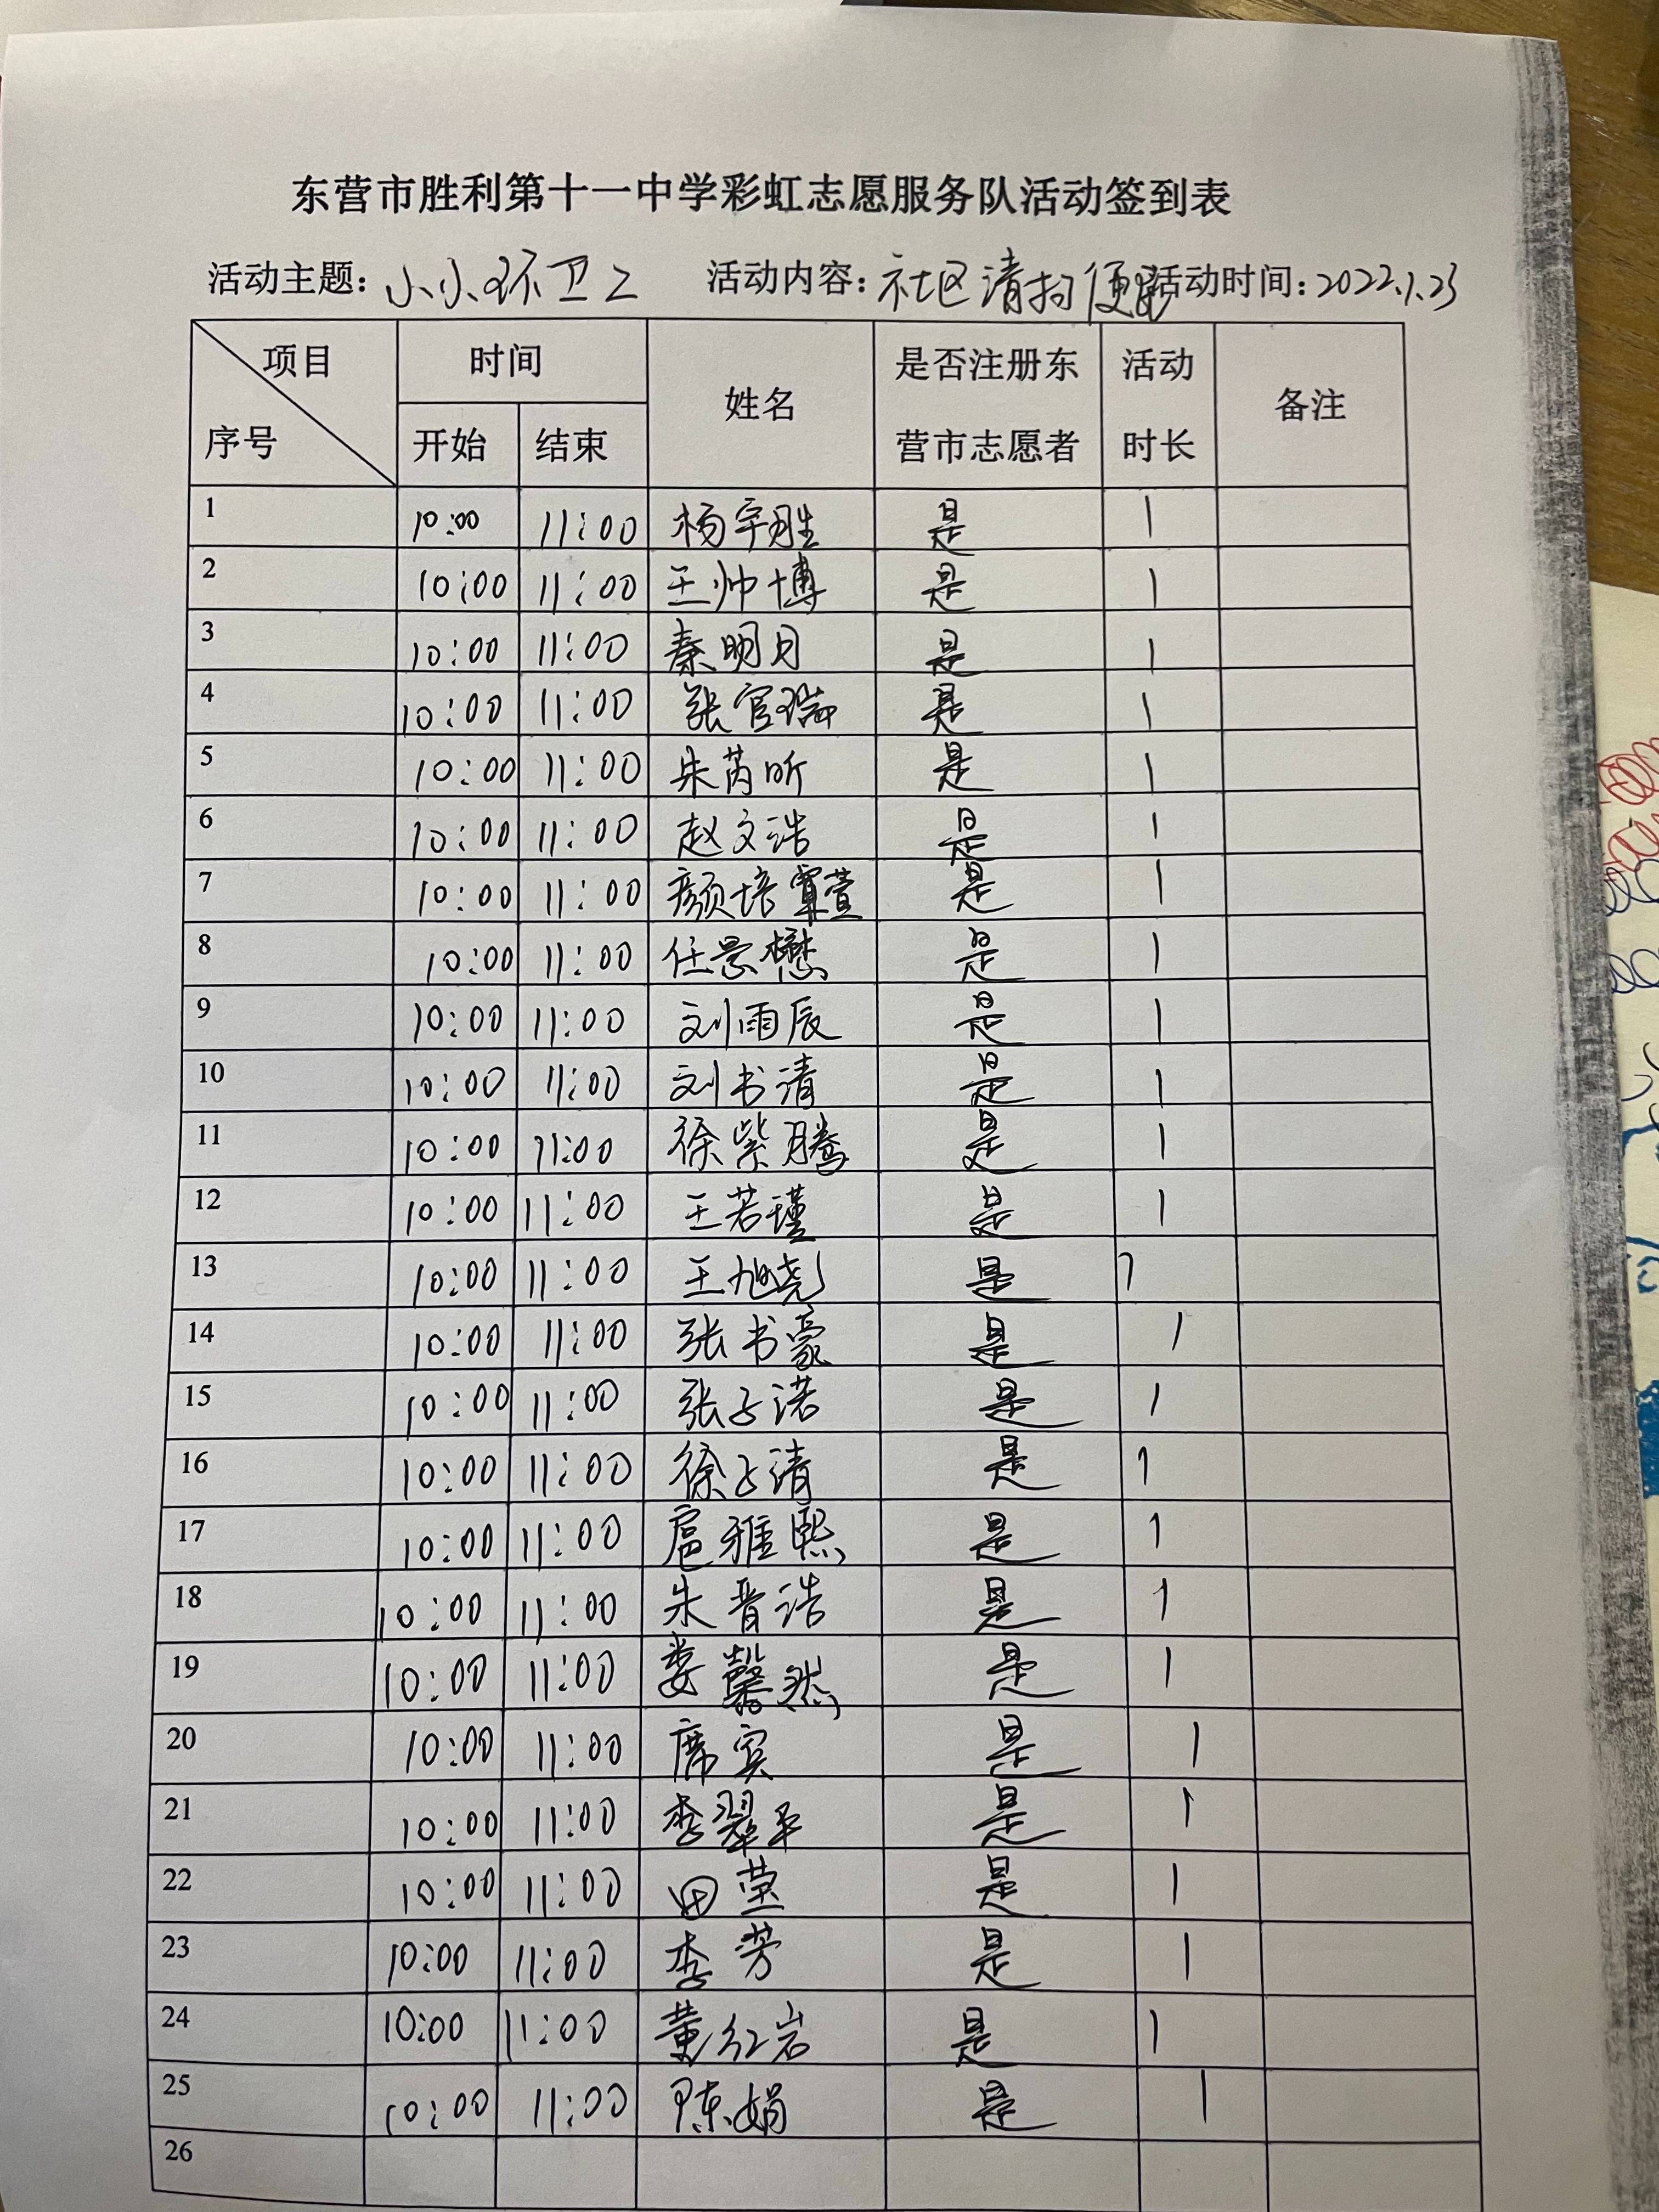 东营市胜利第十一中学彩虹志愿服务队活动签到表
活动主题：小小环卫工 活动内容：社区清扫便 活动时间：2022.1.23
项目 时间 姓名 是否注册东营市志愿者 活动时长 备注
序号 开始 结束
1 10:00 11:00 杨宇胜 是 1
2 10:00 11:00 王帅博 是 1
3 10:00 11:00 秦明月 是 1
4 10:00 11:00 张官瑞 是 1
5 10:00 11:00 朱芮昕 是 1
6 10:00 11:00 赵文浩 是 1
7 10:00 11:00 颜培萱 是 1
8 10:00 11:00 任景懋 是 1
9 10:00 11:00 刘雨辰 是 1
10 10:00 11:00 刘书清 是 1
11 10:00 11:00 徐紫腾 是 1
12 10:00 11:00 王若瑾 是 1
13 10:00 11:00 王旭尧 是 1
14 10:00 11:00 张书豪 是 1
15 10:00 11:00 张子诺 是 1
16 10:00 11:00 徐子清 是 1
17 10:00 11:00 扈雅熙 是 1
18 10:00 11:00 朱晋浩 是 1
19 10:00 11:00 娄馨然 是 1
20 10:00 11:00 席宾 是 1
21 10:00 11:00 李翠平 是 1
22 10:00 11:00 田莹 是 1
23 10:00 11:00 李芳 是 1
24 10:00 11:00 黄红岩 是 1
25 10:00 11:00 陈娟 是 1
26